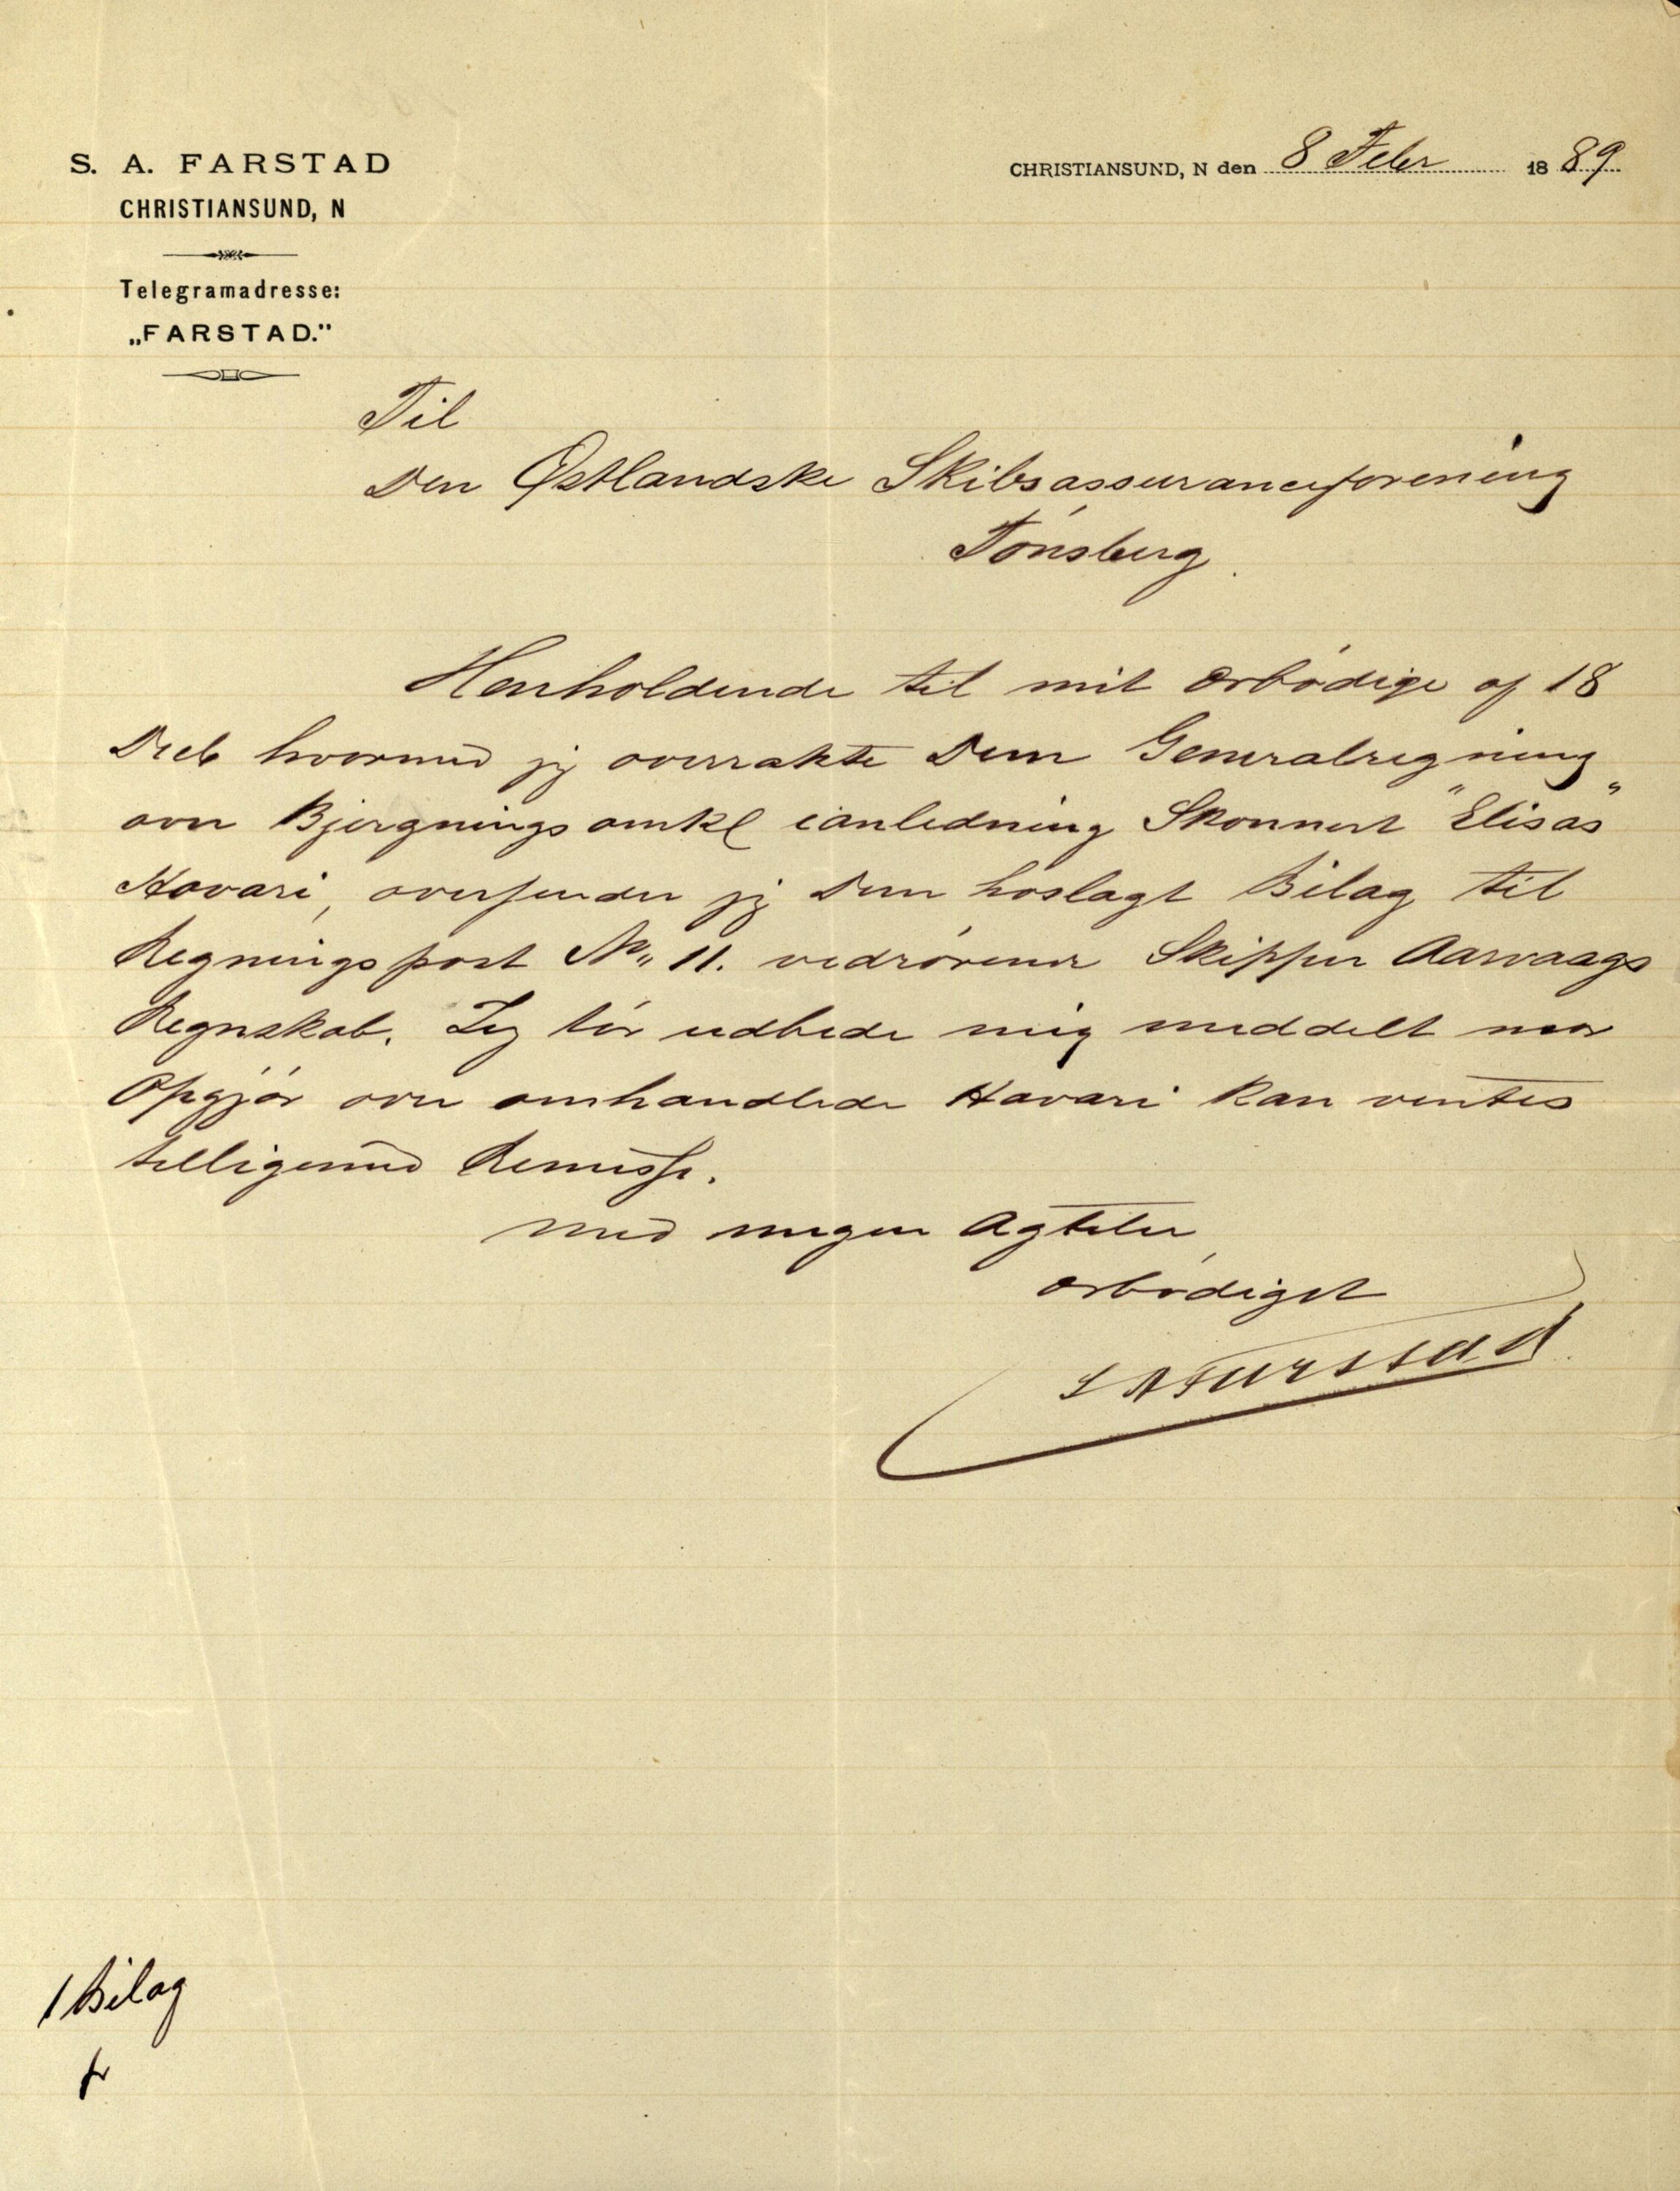 S. A. FARSTAD
CHRISTIANSUND, N
Telegramadresse:
„FARSTAD."
CHRISTIANSUND, N den 8 Febr 1889
Til
Den Østlandske Skibsassuranceforening
Tónsberg.
Henholdende til mit ærbódige af 18
Decb hvormed jeg overrakte Dem Generalregning
over Bjergningsomk ianledning Skonnert "Elisas"
Havari, oversender jeg Dem hoslagt Bilag til
Regningspost No 11. vedrórende Skipper Aarvaags
Regnskab. Jeg tór udbede mig meddelt naar
Opgjór over omhandlede Havari kan ventes
tilligemed Remisse.
Med megen Agtelse
ærbódigst
S A Farstad
1 Bilag